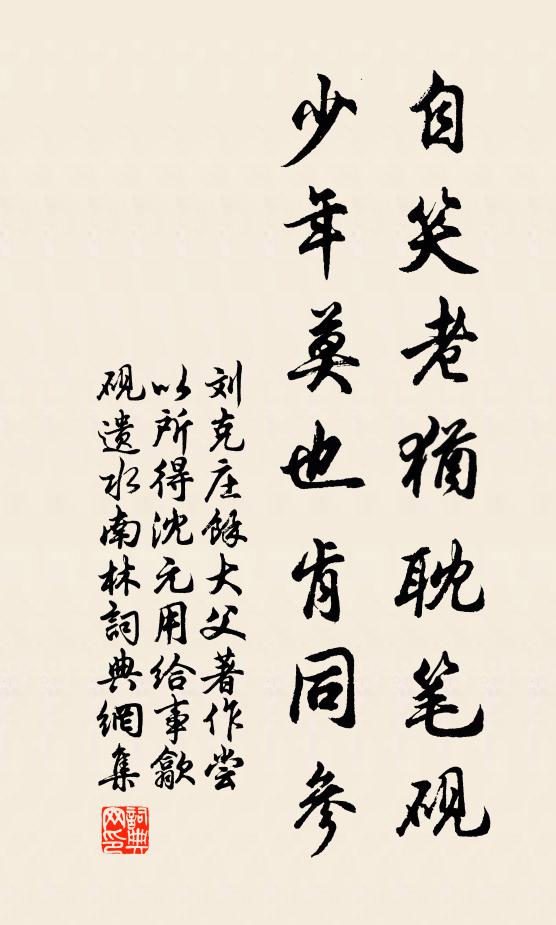 自笑老犹耽笔砚
少年莫也肯同参
刘克庄馀大父著作尝
以所得沈元用给事歙
砚遗水南林詞典網集
詞典
网印